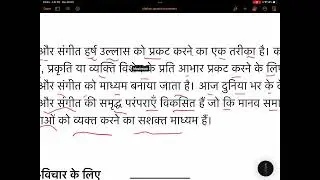 और संगीत हर्ष उल्लास को प्रकट करने का एक तरीका है।
प्रकृति या व्यक्ति के प्रति आभार प्रकट करने के
और संगीत को माध्यम बनाया जाता है। आज दुनिया भर के
और संगीत की समृद्ध परंपराएँ विकसित हैं जो कि मानव
को व्यक्त करने का सशक्त माध्यम हैं।
-विचार के लिए